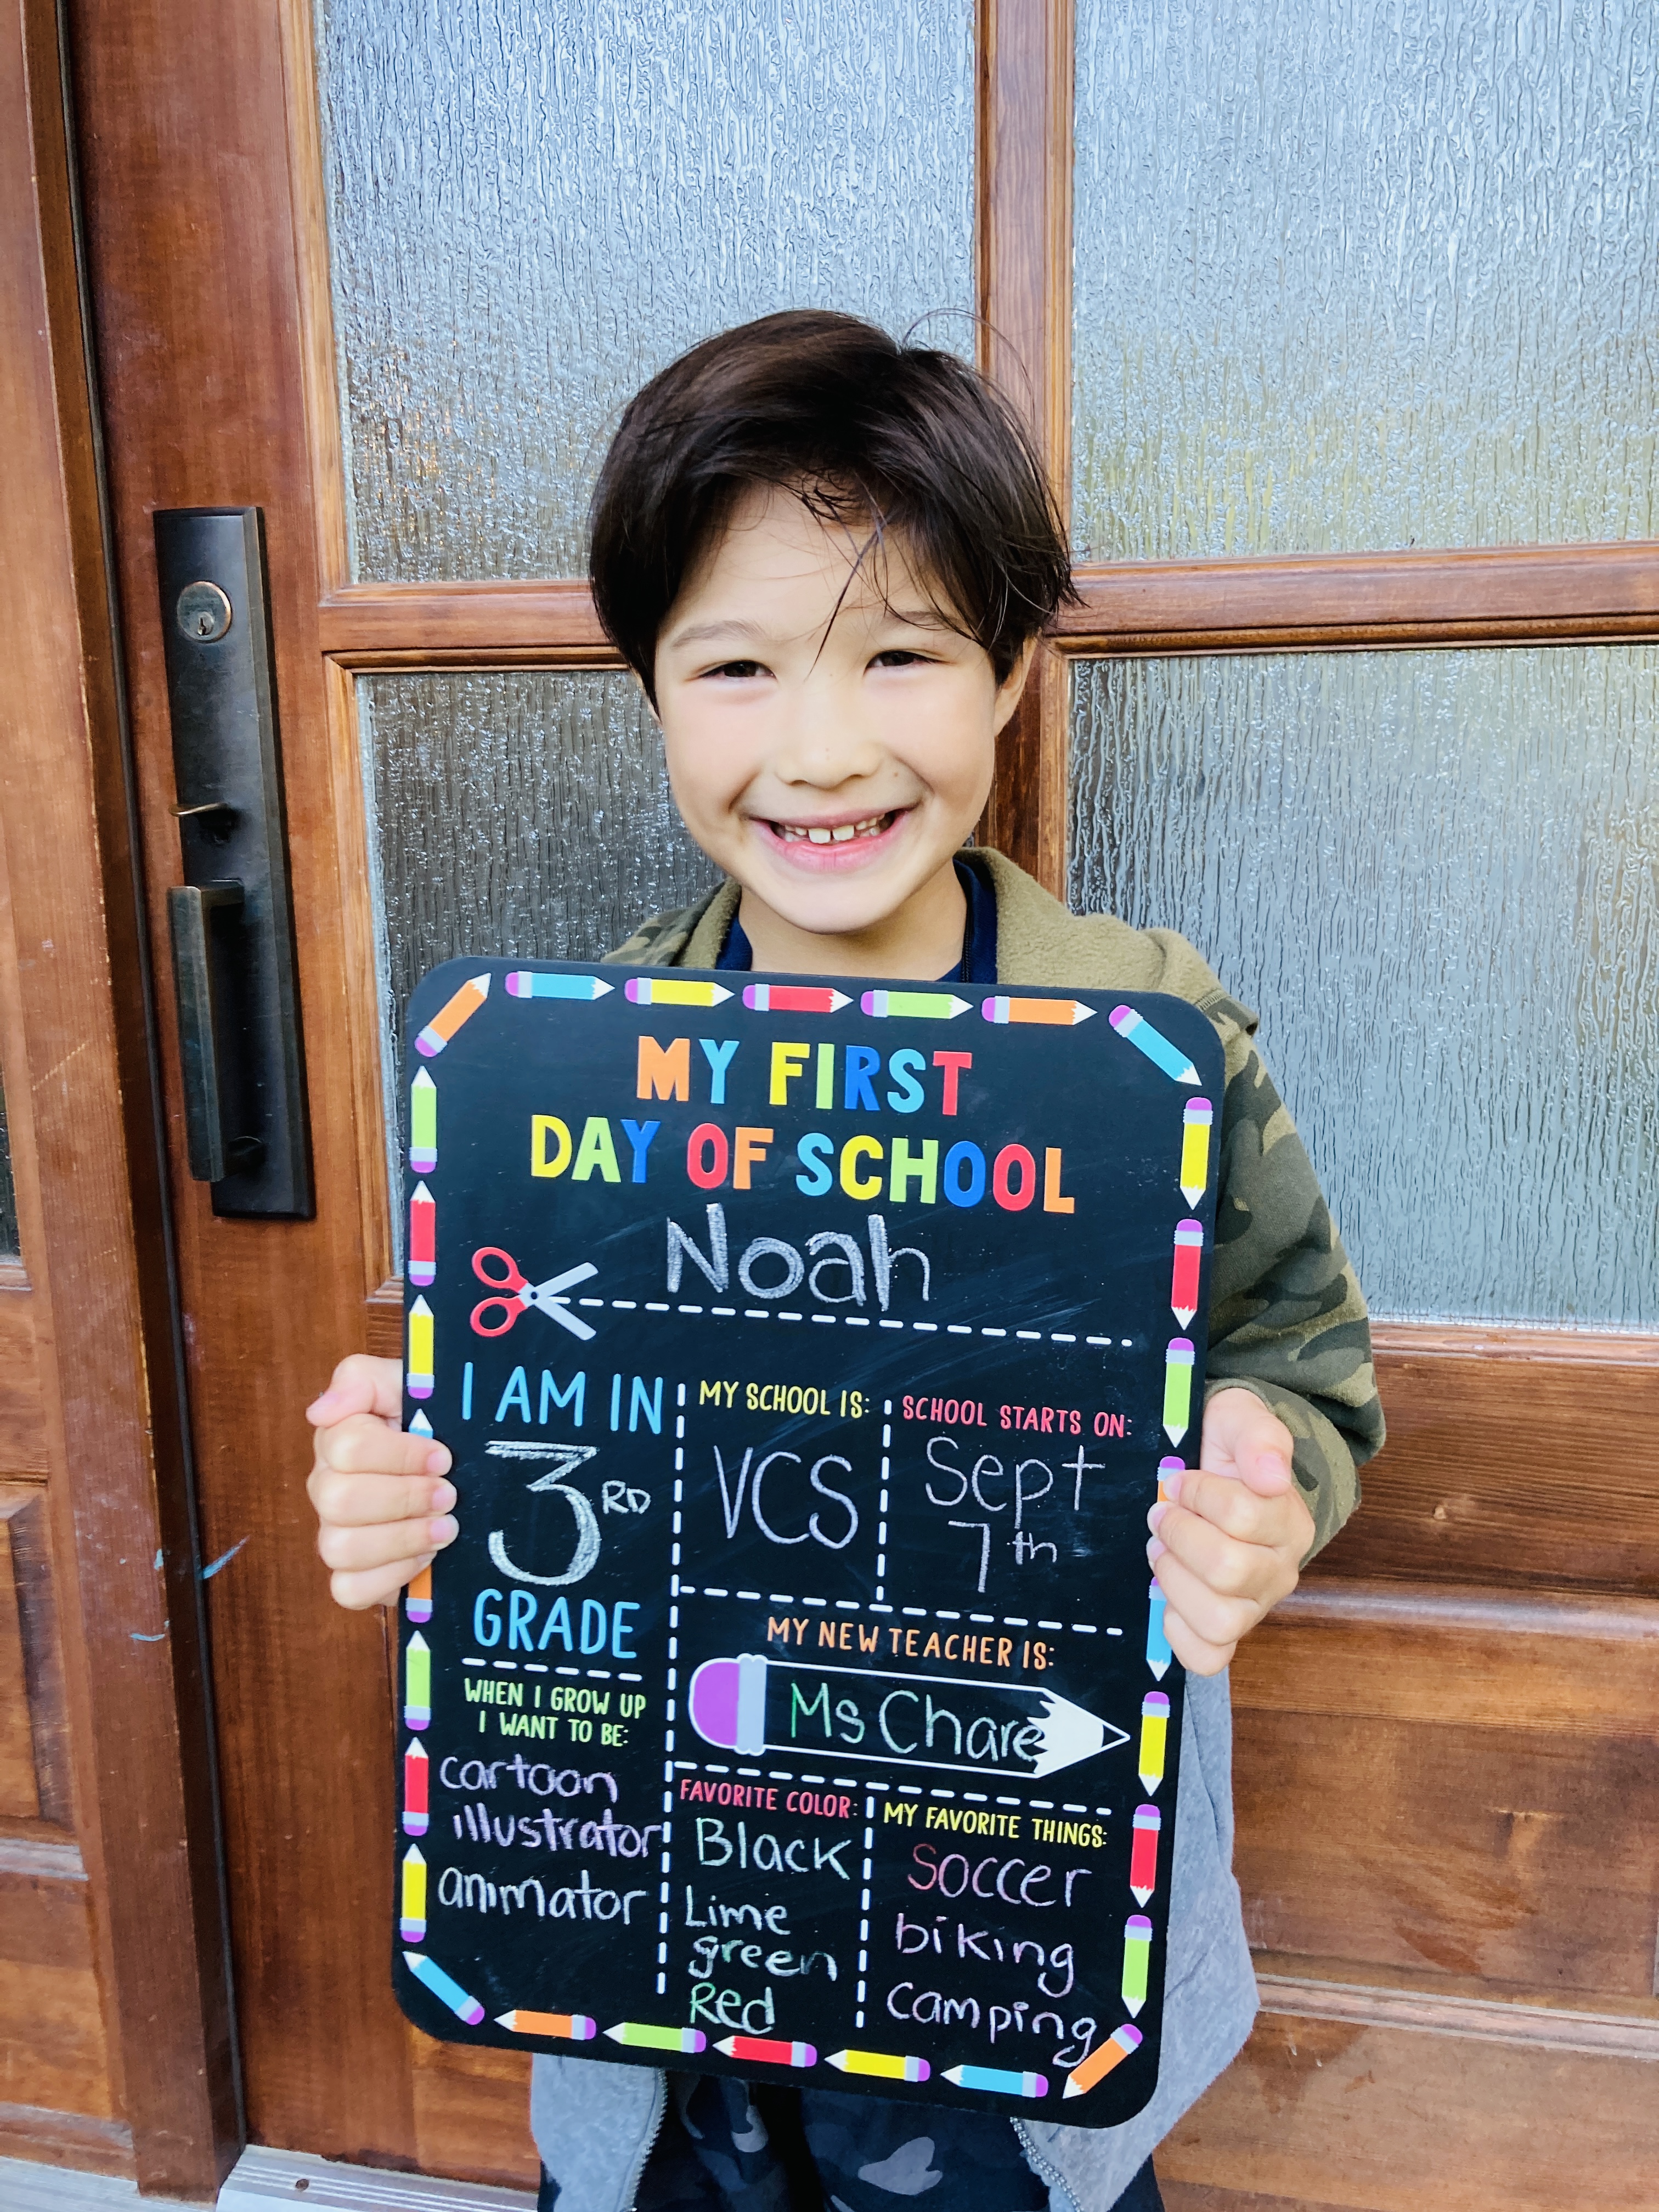 MY FIRST
DAY OF SCHOOL
Noah
I AM IN
3RD
GRADE
MY SCHOOL IS:
VCS
SCHOOL STARTS ON:
Sept
7th
MY NEW TEACHER IS:
Ms Chare
WHEN I GROW UP
I WANT TO BE:
cartoon
illustrator
animator
FAVORITE COLOR:
Black
Lime
green
Red
MY FAVORITE THINGS:
Soccer
biking
camping